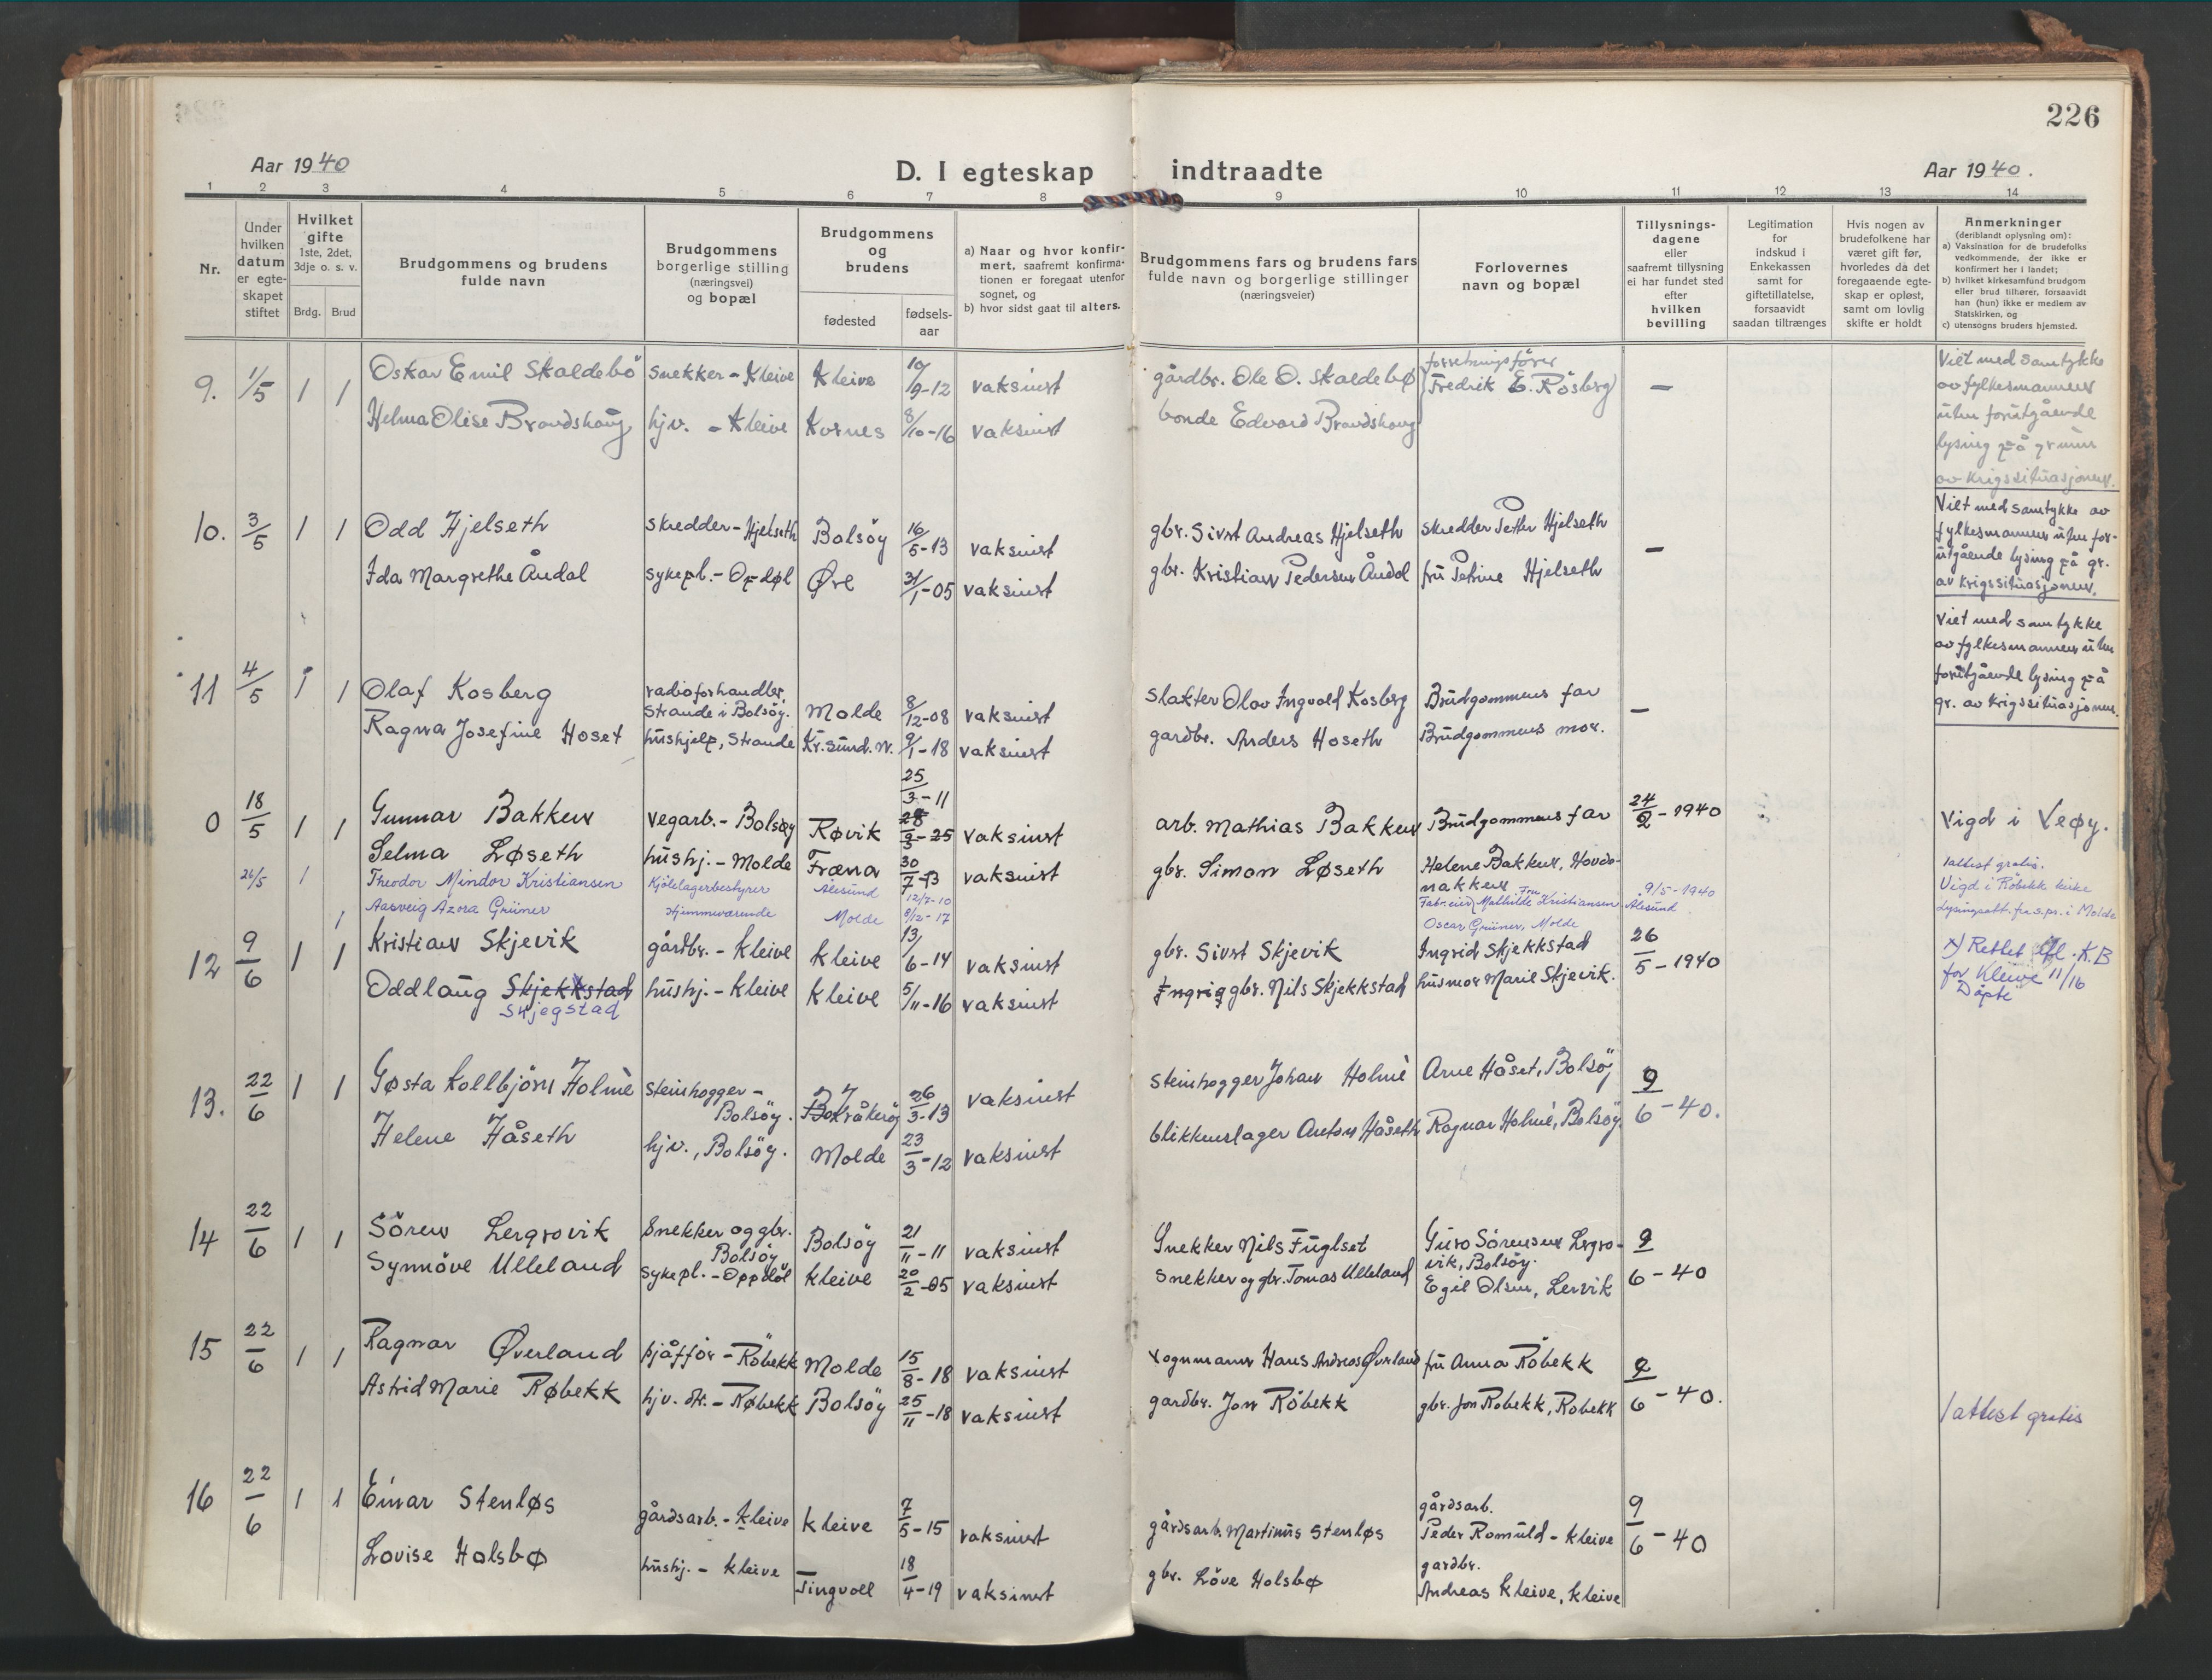 226
Aar 1940
D. I egteskap indtraadte
Aar 1940.
1 2 3 4 5 6 7 8 9 10 11 12 13 14
Nr.
Under
hvilken
datum
er egte-
skapet
stiftet
Hvilket
gifte
1ste, 2det,
3dje o. s. v.
Brdg. Brud
Brudgommens og brudens
fulde navn
Brudgommens
borgerlige stilling
(næringsvei)
og bopæl
Brudgommens
og
brudens
fødested
fødsels-
aar
a) Naar og hvor konfir-
mert, saafremt konfirma-
tionen er foregaat utenfor
sognet, og
b) hvor sidst gaat til alters.
Brudgommens fars og brudens fars
fulde navn og borgerlige stillinger
(næringsveier)
Forlovernes
navn og bopæl
Tillysnings-
dagene
eller
saafremt tillysning
ei har fundet sted
efter
hvilken
bevilling
Legitimation
for
indskud i
Enkekassen
samt for
giftetillatelse,
forsaavidt
saadan tiltrænges
Hvis nogen av
brudefolkene har
været gift før,
hvorledes da det
foregaaende egte-
skap er opløst,
samt om lovlig
skifte er holdt
Anmerkninger
(deriblandt oplysning om):
a) Vaksination for de brudefolks
vedkommende, der ikke er
konfirmert her i landet;
b) hvilket kirkesamfund brudgom
eller brud tilhører, forsaavidt
han (hun) ikke er medlem av
Statskirken, og
c) utensogns bruders hjemsted.
9. 1/5 1 1 Oskar Emil Skaldebö snekker - Kleive Kleive 10/9-12 vaksinert gårdbr. Ole O. Skaldebø forretningsfører
Fredrik E. Rösberg —
Helma Olise Bravdshaug hjv. - Kleive Kornes 8/10-16 vaksinert bonde Edvard Bravdshaug
Viet med samtykke
av fylkesmannen
uten forutgående
lysing på grunn
av krigssituasjonen.
10. 3/5 1 1 Odd Hjelseth skredder - Hjelseth Bolsöy 16/5-13 vaksinert gbr. Sivert Andreas Hjelseth skredder Petter Hjelseth —
Ida Margrethe Åndal sykepl. - Opdøl Øre 31/1-05 vaksinert gbr. Kristian Pedersen Åndal fru Petrine Hjelseth
Viet med samtykke av
fylkesmannen uten for-
utgående lysing på gr.
av krigssituasjonen.
11 4/5 1 1 Olaf Kosberg radioforhandler,
Strande i Bolsöy. Molde 8/12-08 vaksinert slakter Olav Ingvald Kosberg Brudgommens far —
Ragna Josefine Hoset hushjelp, Strande Kr.sund. N. 9/1-18 vaksinert gardbr. Anders Hoseth Brudgommens mor.
Viet med samtykke
av fylkesmannen uten
forutgående lysing på
gr. av krigssituasjonen.
0 18/5 1 1 Gunnar Bakken vegarb. - Bolsøy Røvik 25/3-11
28/3-25 vaksinert arb. Mathias Bakken Brudgommens far 24/2-1940 Vigd i Veøy.
Selma Løseth hushj. - Molde Fræna 30/7-13 vaksinert gbr. Simon Løseth Helene Bakken, Hovds-
nakken
26/5 1 Theodor Mindor Kristiansen Kjölelagerbestyrer Ålesund 12/7-10 Fabr.eier Fru Mathilde Kristiansen 9/5-1940
Ålesund
1 Aasveig Azora Grüner Hjemmeværende Molde 8/12-17 Oscar Grüner, Molde
1 attest gratis.
Vigd i Röbekk kirke
Lysingsatt. fra s.pr. i Molde
12 9/6 1 1 Kristian Skjevik gårdbr. - Kleive Kleive 13/6-14 vaksinert gbr. Sivert Skjevik Ingrid Skjekkstad 26/5-1940
Oddlaug Skjekkstad
Skjegstad hushj. - Kleive Kleive 5/11-16 vaksinert Ingrig gbr. Nils Skjekkstad husmor Marie Skjevik.
x) Rettet efl. K.B
for Kleive 11/16
"Döpte"
13. 22/6 1 1 Gøsta Kollbjörn Holmè steinhogger -
Bolsöy. 26/3-13 vaksinert steinhogger Johan Holmè Arne Håset, Bolsöy 9/6-40.
Helene Håseth hjv., Bolsöy. Molde 23/3-12 vaksinert blikkenslager Anton Håseth Ragnar Holmè, Bolsöy
14 22/6 1 1 Sören Lergrovik Snekker og gbr.
Bolsöy Bolsöy 21/11-11 vaksinert Snekker Nils Fuglset Guro Sörensen Lergro-
vik, Bolsöy. 9/6-40
Synnöve Ulleland sykepl. - Oppdöl Kleive 20/2-05 vaksinert Snekker og gbr. Tomas Ulleland Egil Olsen, Lervik
15 22/6 1 1 Ragnar Øverland sjåfför - Röbekk Molde 15/8-18 vaksinert vognmann Hans Andreas Øverland fru Anna Röbekk 9/6-40.
Astrid Marie Røbekk hjv. dtr. - Røbekk Bolsöy 25/11-18 vaksinert gardbr. Jon Röbekk gbr. Jon Robekk, Robekk
1 attest gratis
16 22/6 1 1 Einar Stenløs gårdsarb. - Kleive Kleive 7/5-15 vaksinert gårdsarb. Martinus Stenløs gårdsarb.
Peder Romuld - Kleive 9/6-40
Lovise Holsbø hushj. - Kleive Tingvoll 18/4-19 vaksinert gbr. Löve Holsbø gardbr.
Andreas Kleive, Kleive